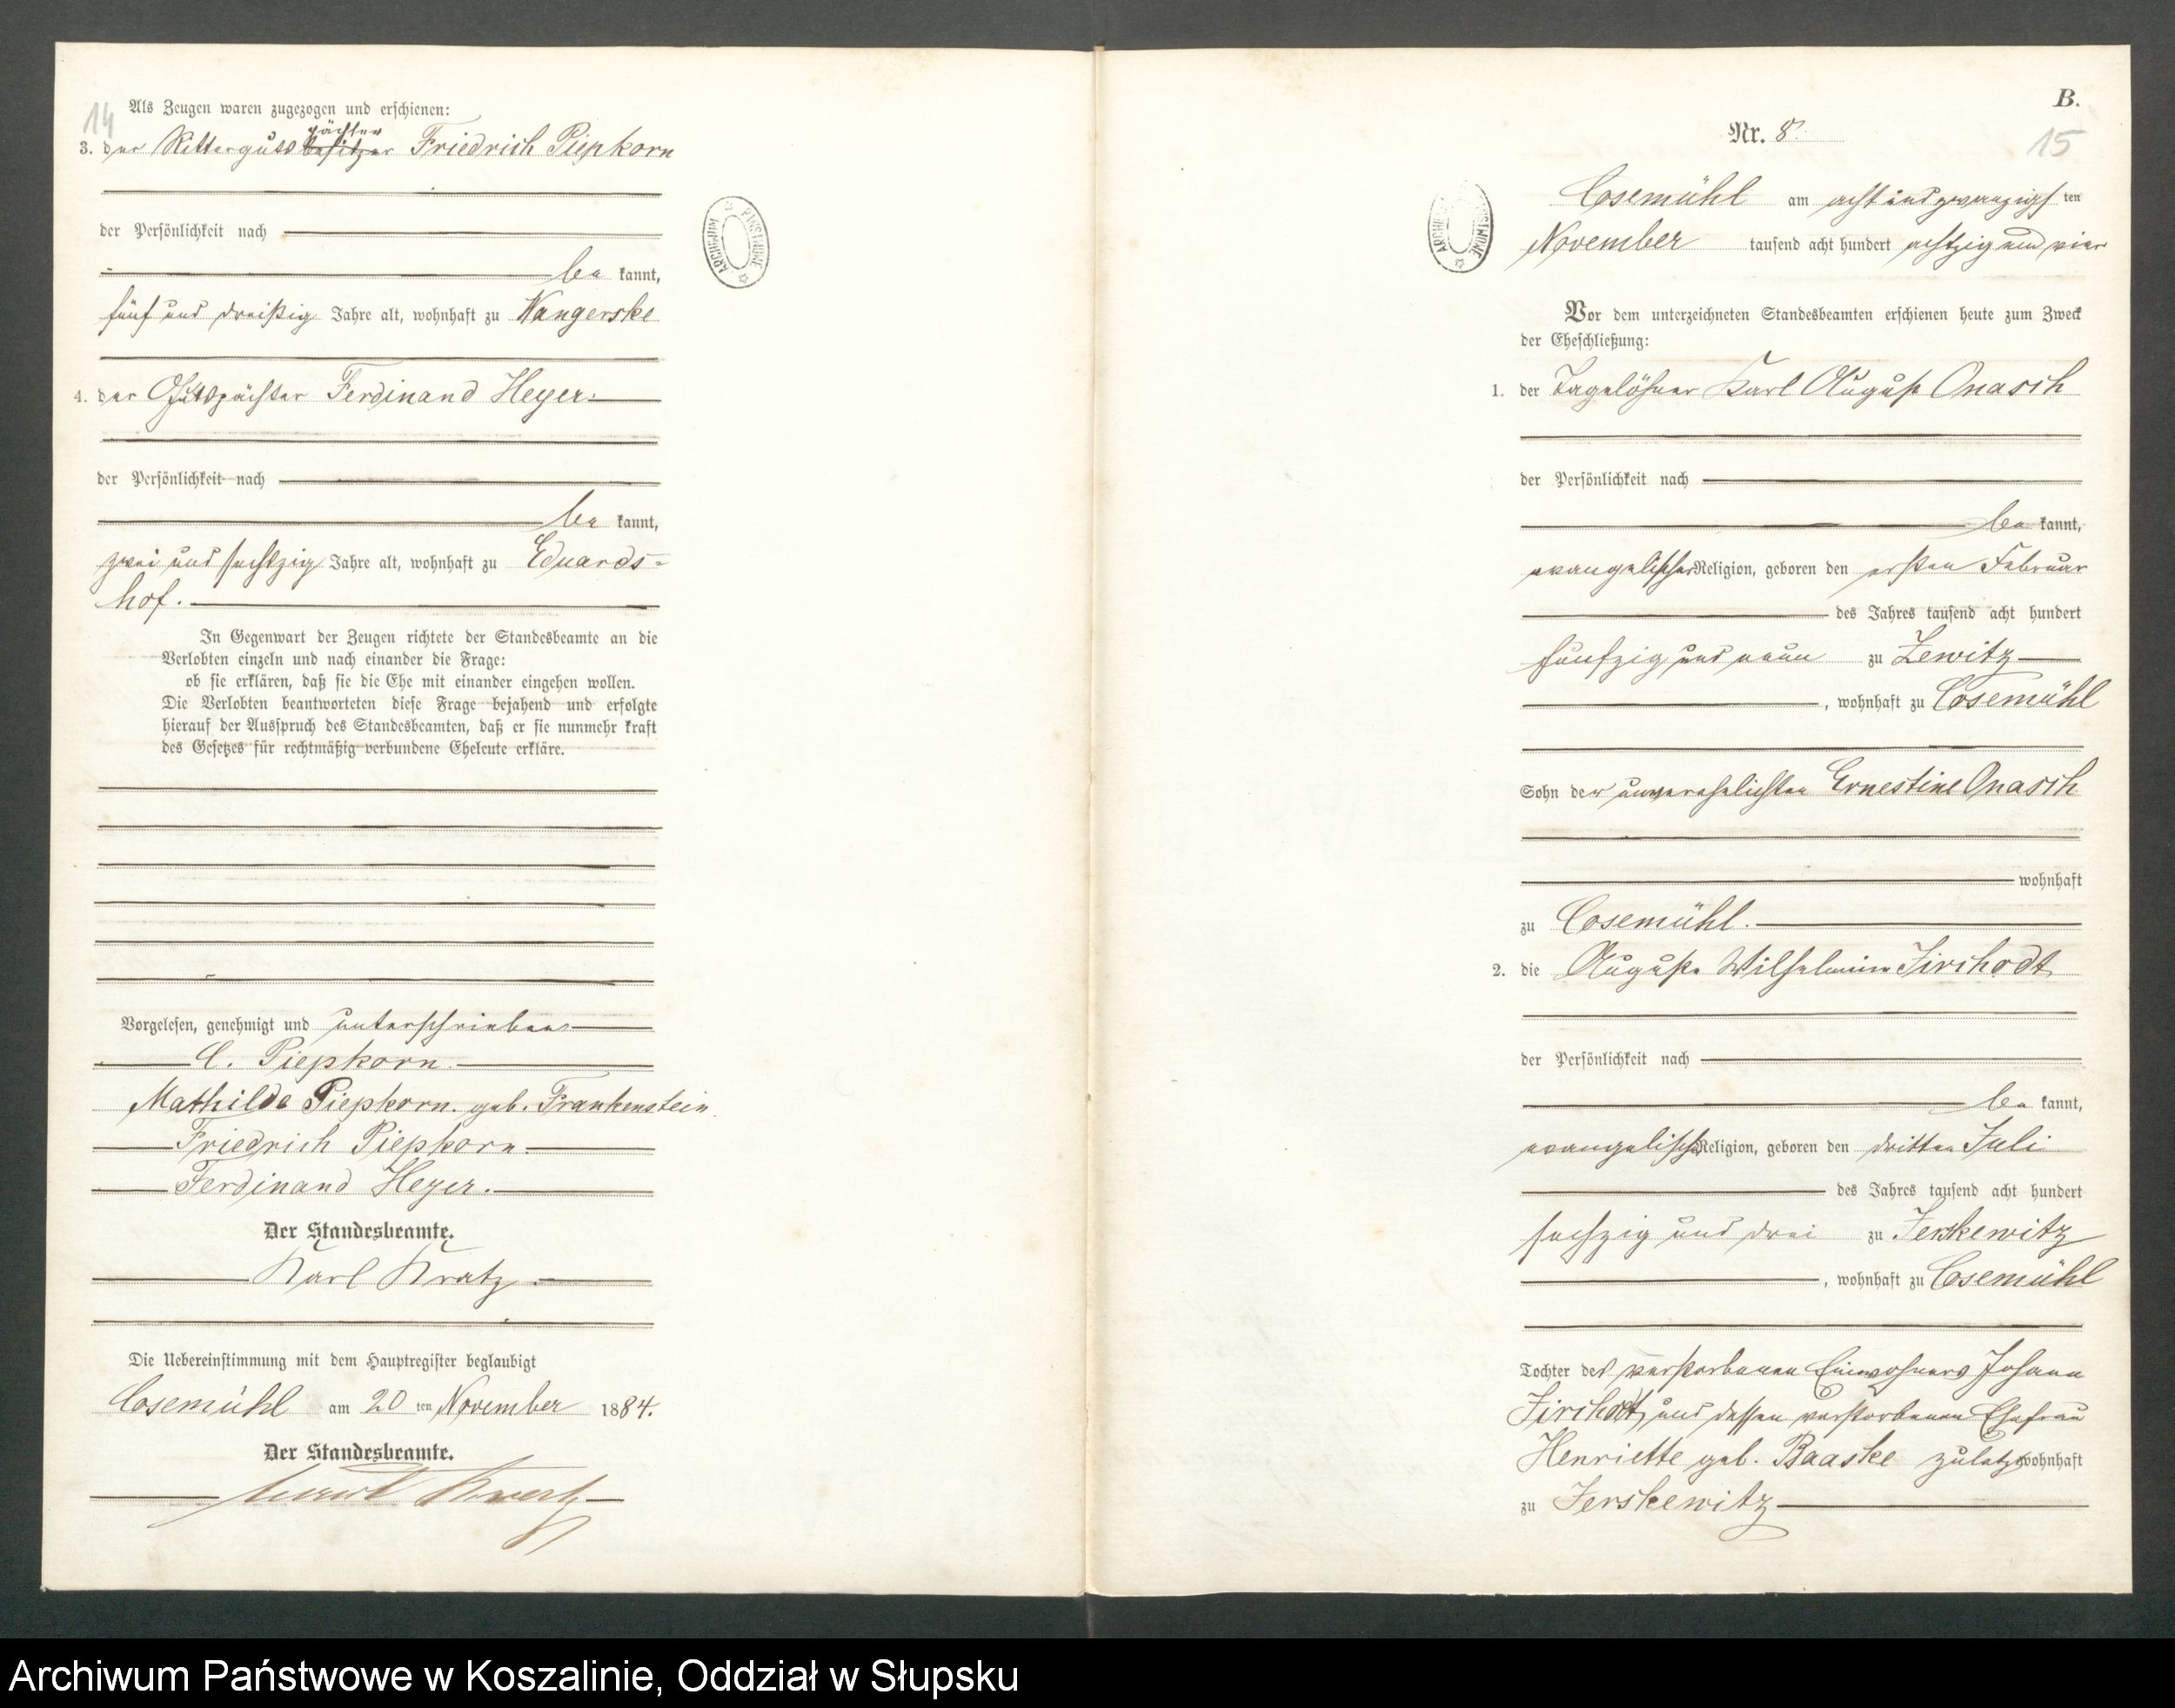 14
Als Zeugen waren zugezogen und erschienen:
pächter
3. der Ritterguts besitzer Friedrich Piepkorn
der Persönlichkeit nach
be kannt,
fünf und dreißig Jahre alt, wohnhaft zu Wangerske
4. der Gutspächter Ferdinand Heyer.
der Persönlichkeit nach
be kannt,
zwei und sechszig Jahre alt, wohnhaft zu Eduards=
hof.
In Gegenwart der Zeugen richtete der Standesbeamte an die
Verlobten einzeln und nach einander die Frage:
ob sie erklären, daß sie die Ehe mit einander eingehen wollen.
Die Verlobten beantworteten diese Frage bejahend und erfolgte
hierauf der Ausspruch des Standesbeamten, daß er sie nunmehr kraft
des Gesetzes für rechtmäßig verbundene Eheleute erkläre.
Vorgelesen, genehmigt und unterschrieben
C. Piepkorn.
Mathilde Piepkorn. geb. Frankenstein.
Friedrich Piepkorn.
Ferdinand Heyer.
Der Standesbeamte.
Karl Kratz.
Die Uebereinstimmung mit dem Hauptregister beglaubigt
Cosemühl am 20 ten November 1884.
Der Standesbeamte.
Karl Kratz
ARCHIWUM PAŃSTWOWE
B.
Nr. 8.
15
ARCHIWUM PAŃSTWOWE
Cosemühl am acht und zwanzigs ten
November tausend acht hundert achtzig und vier
Vor dem unterzeichneten Standesbeamten erschienen heute zum Zweck
der Eheschließung:
1. der Tagelöhner Karl August Onasch
der Persönlichkeit nach
be kannt,
evangelischer Religion, geboren den ersten Februar
des Jahres tausend acht hundert
fünfzig und neun zu Zewitz
, wohnhaft zu Cosemühl
Sohn der unverehelichten Ernestine Onasch
wohnhaft
zu Cosemühl.
2. die Auguste Wilhelmine Jirchodt
der Persönlichkeit nach
be kannt,
evangelischer Religion, geboren den dritten Juli
des Jahres tausend acht hundert
sechszig und drei zu Jerskewitz
, wohnhaft zu Cosemühl
Tochter des verstorbenen Einwohners Johann
Jirchodt, und dessen verstorbenen Ehefrau
Henriette geb. Baaske zuletzt wohnhaft
zu Jerskewitz
Archiwum Państwowe w Koszalinie, Oddział w Słupsku